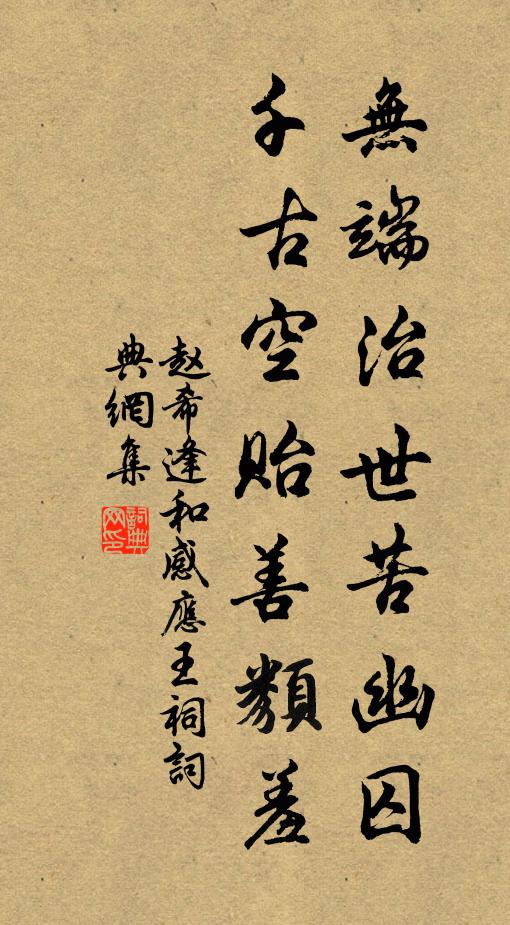 無端治世苦幽囚
千古空貽善類羞
赵希逢和感應王祠詞
典網集
詞典
网印